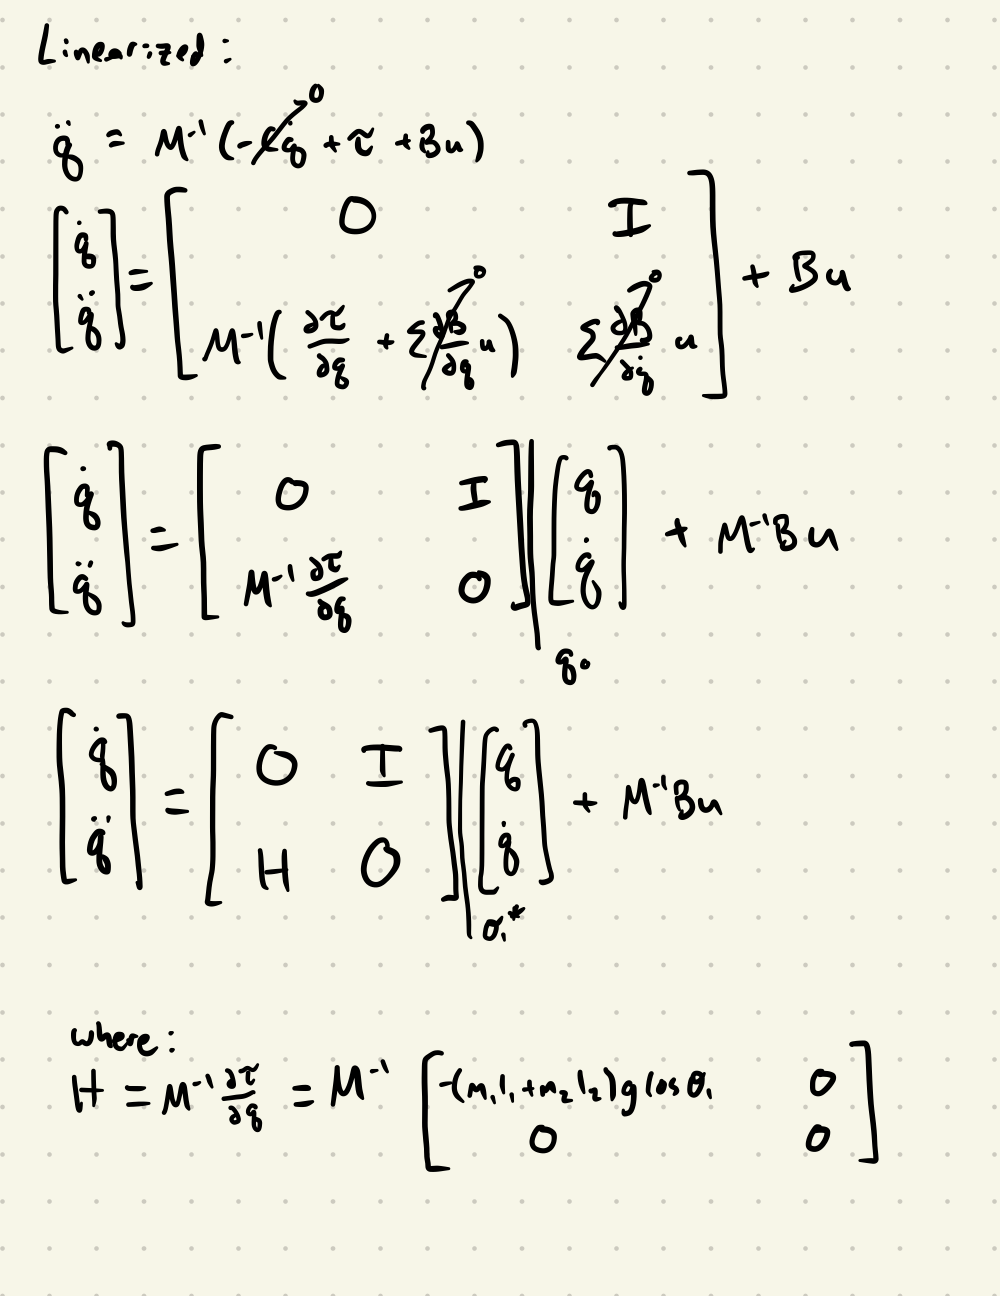 Linearized:
q̈ = M⁻¹(-Cq̇⁰ + τ + Bu)
[q̇; q̈] = [0 I; M⁻¹(∂τ/∂q + Σ ∂B/∂q⁰ u) Σ ∂B/∂q̇⁰ u] + Bu
[q̇; q̈] = [0 I; M⁻¹ ∂τ/∂q 0]|q₀ [q; q̇] + M⁻¹Bu
[q̇; q̈] = [0 I; H 0]|θ₁* [q; q̇] + M⁻¹Bu
where:
H = M⁻¹ ∂τ/∂q = M⁻¹ [-(m₁l₁+m₂l₂)g cos θ₁ 0; 0 0]